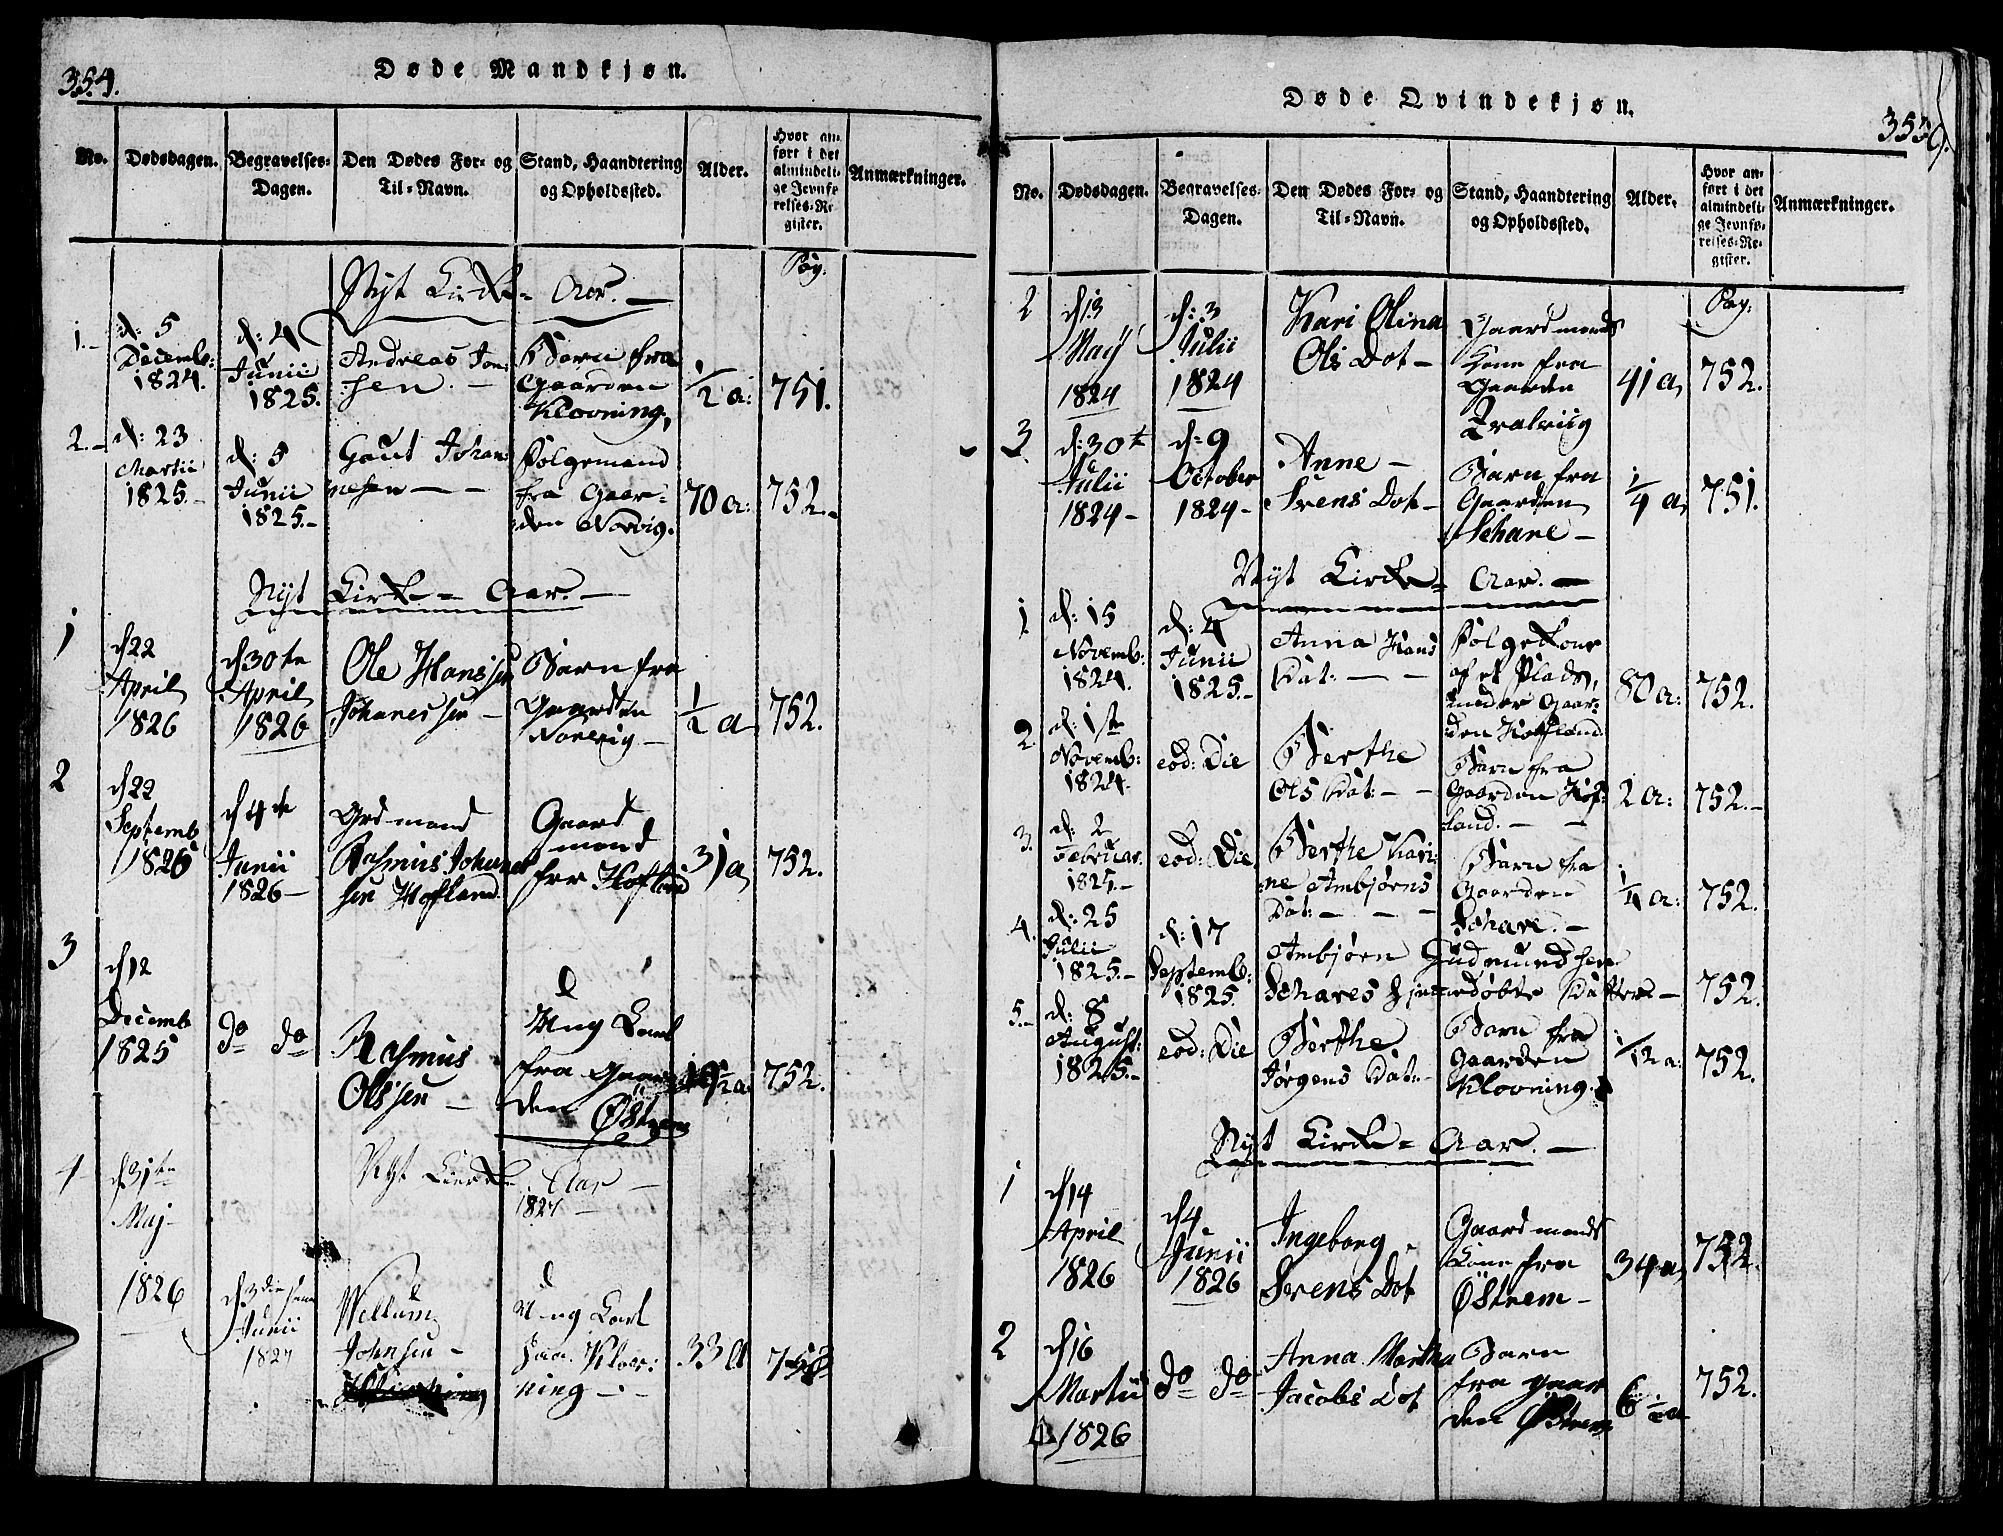 354.
Døde Mandkjøn.
No.
Dødsdagen.
Begravelses-
Dagen.
Den Dødes For- og
Til-Navn.
Stand, Haandtering
og Opholdssted.
Alder.
Hvor an-
ført i det
almindeli-
ge Jevnfø-
relses-Re-
gister.
Anmærkninger.
Nyt Kirke-Aar.
Pag:
1.
d: 5
Decemb:
1824.
d: 4
Junii
1825.
Andreas Jon
sen. -
Barn fra
Gaarden
Klovning,
1/2 a:
751.
2.
d: 23
Martii
1825.
d: 5
Junii
1825.
Gout Johan
nesen
Folgemand
fra Gaar-
den Norvig.
70 a:
752.
Nyt Kirke-Aar.
1
d 22
April
1826
d 30te
April
1826
Ole Hanssen
Johanessen
Barn fra
Gaarden
Norevig
1/2 a
752.
2
d 22
Septemb
1825
d 4de
Junii
1826
Grdmand
Rasmus Johanes
sen Hofland
Gaard
mand
fra Hofland
31 a
752.
3
d 12
Decemb
1825
do do
Rasmus
Olssen
Ung Karl
fra Gaar
den Østrem
752.
Nyt Kirke Aar
1827
4
d 31te
Maj
1826
d 3die
Junii
1827
Wellum
Johnsen
Ung Karl
fra Klov:
ning
33 a
Døde Qvindekjøn.
355.
No.
Dødsdagen.
Begravelses-
Dagen.
Den Dødes For- og
Til-Navn.
Stand, Haandtering
og Opholdssted.
Alder.
Hvor an-
ført i det
almindeli-
ge Jevnfø-
relses-Re-
gister.
Anmærkninger.
Pag:
2
d 13
Maij
1824
d: 3
Julii
1824
Kari Olina
Ols Dot
Gaardmands
Kone fra
Gaarden
41 a
752.
3
d: 30te
Julii
1824
d: 9
October
1824
Anne
Svens Dot
Barn fra
Gaarden
Schare
1/4 a
751.
Nyt Kirke-Aar.
1
d: 15
Novemb:
1824.
d: 4
Junii
1825.
Anna Hans
Dat:
Folgekone
af et Plads,
under Gaar-
den Hofland
80 a:
752.
2
d: 1ste
Novemb:
1824.
eod: Die
Berthe
Ols Dat:
Barn fra
Gaarden Hof-
land.
2 a:
752.
3.
d: 2
Februar.
1825.
eod: Die
Berthe Kari-
ne Ambjørns
Dat:
Barn fra
Gaarden
Schare.
1/4 a:
752.
4.
d: 25
Julii
1825.
d: 17
Septemb:
1825.
Ambjørn Gudmundsen
Schares hjemedøbte Datter
752.
5.
d: 8
August:
1825.
eod: Die
Berthe
Jørgens Dat:
Barn fra
Gaarden
Klovning.
1/12 a:
752.
Nyt Kirke-Aar.
1
d 14
April
1826
d 4
Junii
1826
Ingeborg
Svens Dot
Gaardmands
Kone fra
Østrem
34 a
752.
2
d 16
Martii
1826
do do
Anna Martha
Jacobs Dot
Barn
fra gaar
den Østrem
6 1/2 a
752.